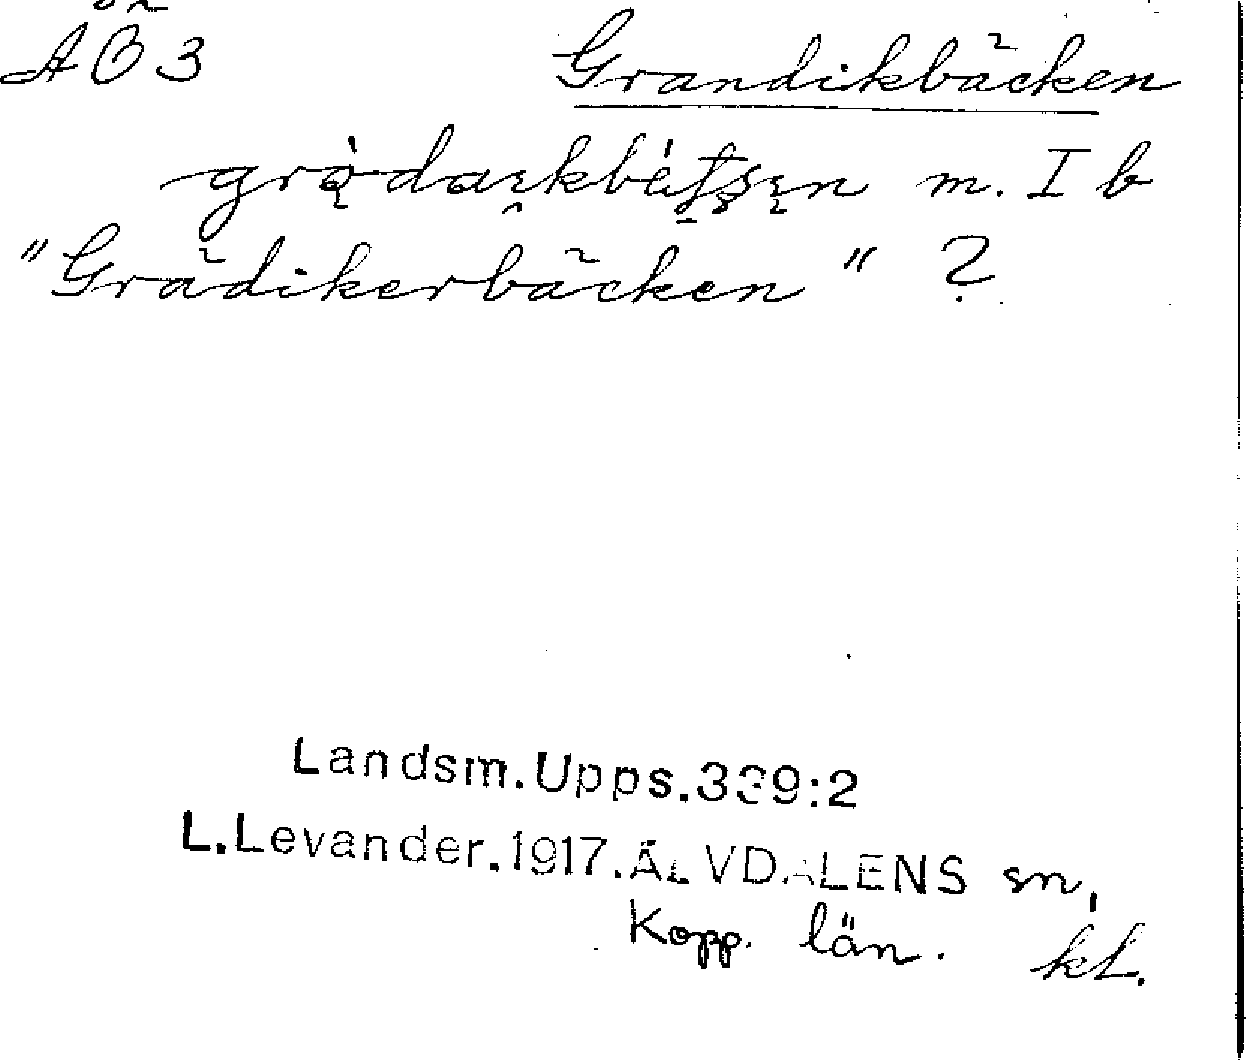 ÅÖ3 Grandikbäcken
m. I b
"Grädikerbäcken" ?
Landsm.Upps.339:2
L.Levander.1917.ÄLVDALENS sn,
Kopp. län. kL.